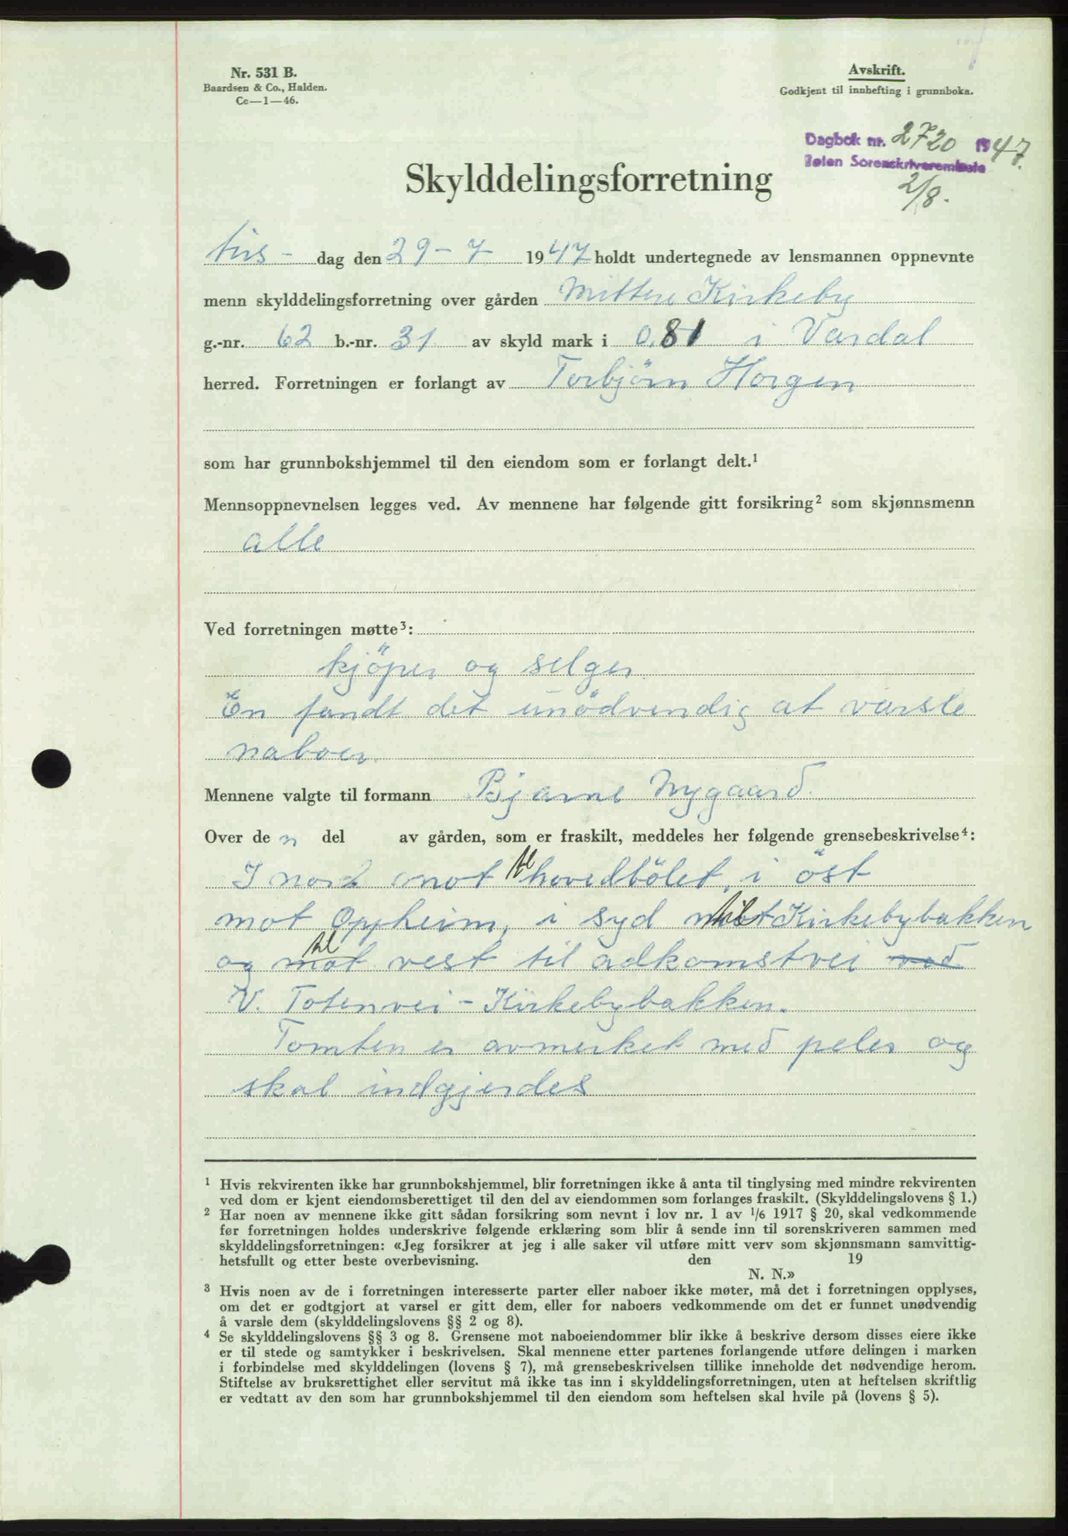 Nr. 531 B.
Baardsen & Co., Halden.
Cc—1—46.
Avskrift.
Godkjent til innhefting i grunnboka.
Dagbok nr. 2720 1947.
Toten Sorenskriverembete
2/8.
Skylddelingsforretning
tirs- dag den 29-7 1947 holdt undertegnede av lensmannen oppnevnte
menn skylddelingsforretning over gården Mittre Kirkeby
g.-nr. 62 b.-nr. 31. av skyld mark i 0.81 i Vardal
herred. Forretningen er forlangt av Torbjörn Horgen
som har grunnbokshjemmel til den eiendom som er forlangt delt.¹
Mennsoppnevnelsen legges ved. Av mennene har følgende gitt forsikring² som skjønnsmenn
alle
Ved forretningen møtte³:
kjöper og selger.
En fandt det unödvendig at varsle
naboer.
Mennene valgte til formann Bjarne Nygaard.
Over den del av gården, som er fraskilt, meddeles her følgende grensebeskrivelse⁴:
I nord mot til hovedbölet, i öst
mot Oppheim, i syd til Kirkebybakken
og mot til vest til adkomstvei ved
V. Totenvei - Kirkebybakken.
Tomten er avmerket med peler og
skal indgjerdes
¹ Hvis rekvirenten ikke har grunnbokshjemmel, blir forretningen ikke å anta til tinglysing med mindre rekvirenten
ved dom er kjent eiendomsberettiget til den del av eiendommen som forlanges fraskilt. (Skylddelingslovens § 1.)
² Har noen av mennene ikke gitt sådan forsikring som nevnt i lov nr. 1 av ¹/6 1917 § 20, skal vedkommende
før forretningen holdes underskrive følgende erklæring som blir å sende inn til sorenskriveren sammen med
skylddelingsforretningen: «Jeg forsikrer at jeg i alle saker vil utføre mitt verv som skjønnsmann samvittig-
hetsfullt og etter beste overbevisning. den 19
N. N.»
³ Hvis noen av de i forretningen interesserte parter eller naboer ikke møter, må det i forretningen opplyses,
om det er godtgjort at varsel er gitt dem, eller for naboers vedkommende om det er funnet unødvendig
å varsle dem (skylddelingslovens §§ 2 og 8).
⁴ Se skylddelingslovens §§ 3 og 8. Grensene mot naboeiendommer blir ikke å beskrive dersom disses eiere ikke
er til stede og samtykker i beskrivelsen. Skal mennene etter partenes forlangende utføre delingen i marken
i forbindelse med skylddelingen (lovens § 7), må grensebeskrivelsen tillike inneholde det nødvendige herom.
Stiftelse av bruksrettighet eller servitut må ikke tas inn i skylddelingsforretningen, uten at heftelsen skriftlig
er vedtatt av den som har grunnbokshjemmel til den eiendom som heftelsen skal hvile på (lovens § 5).